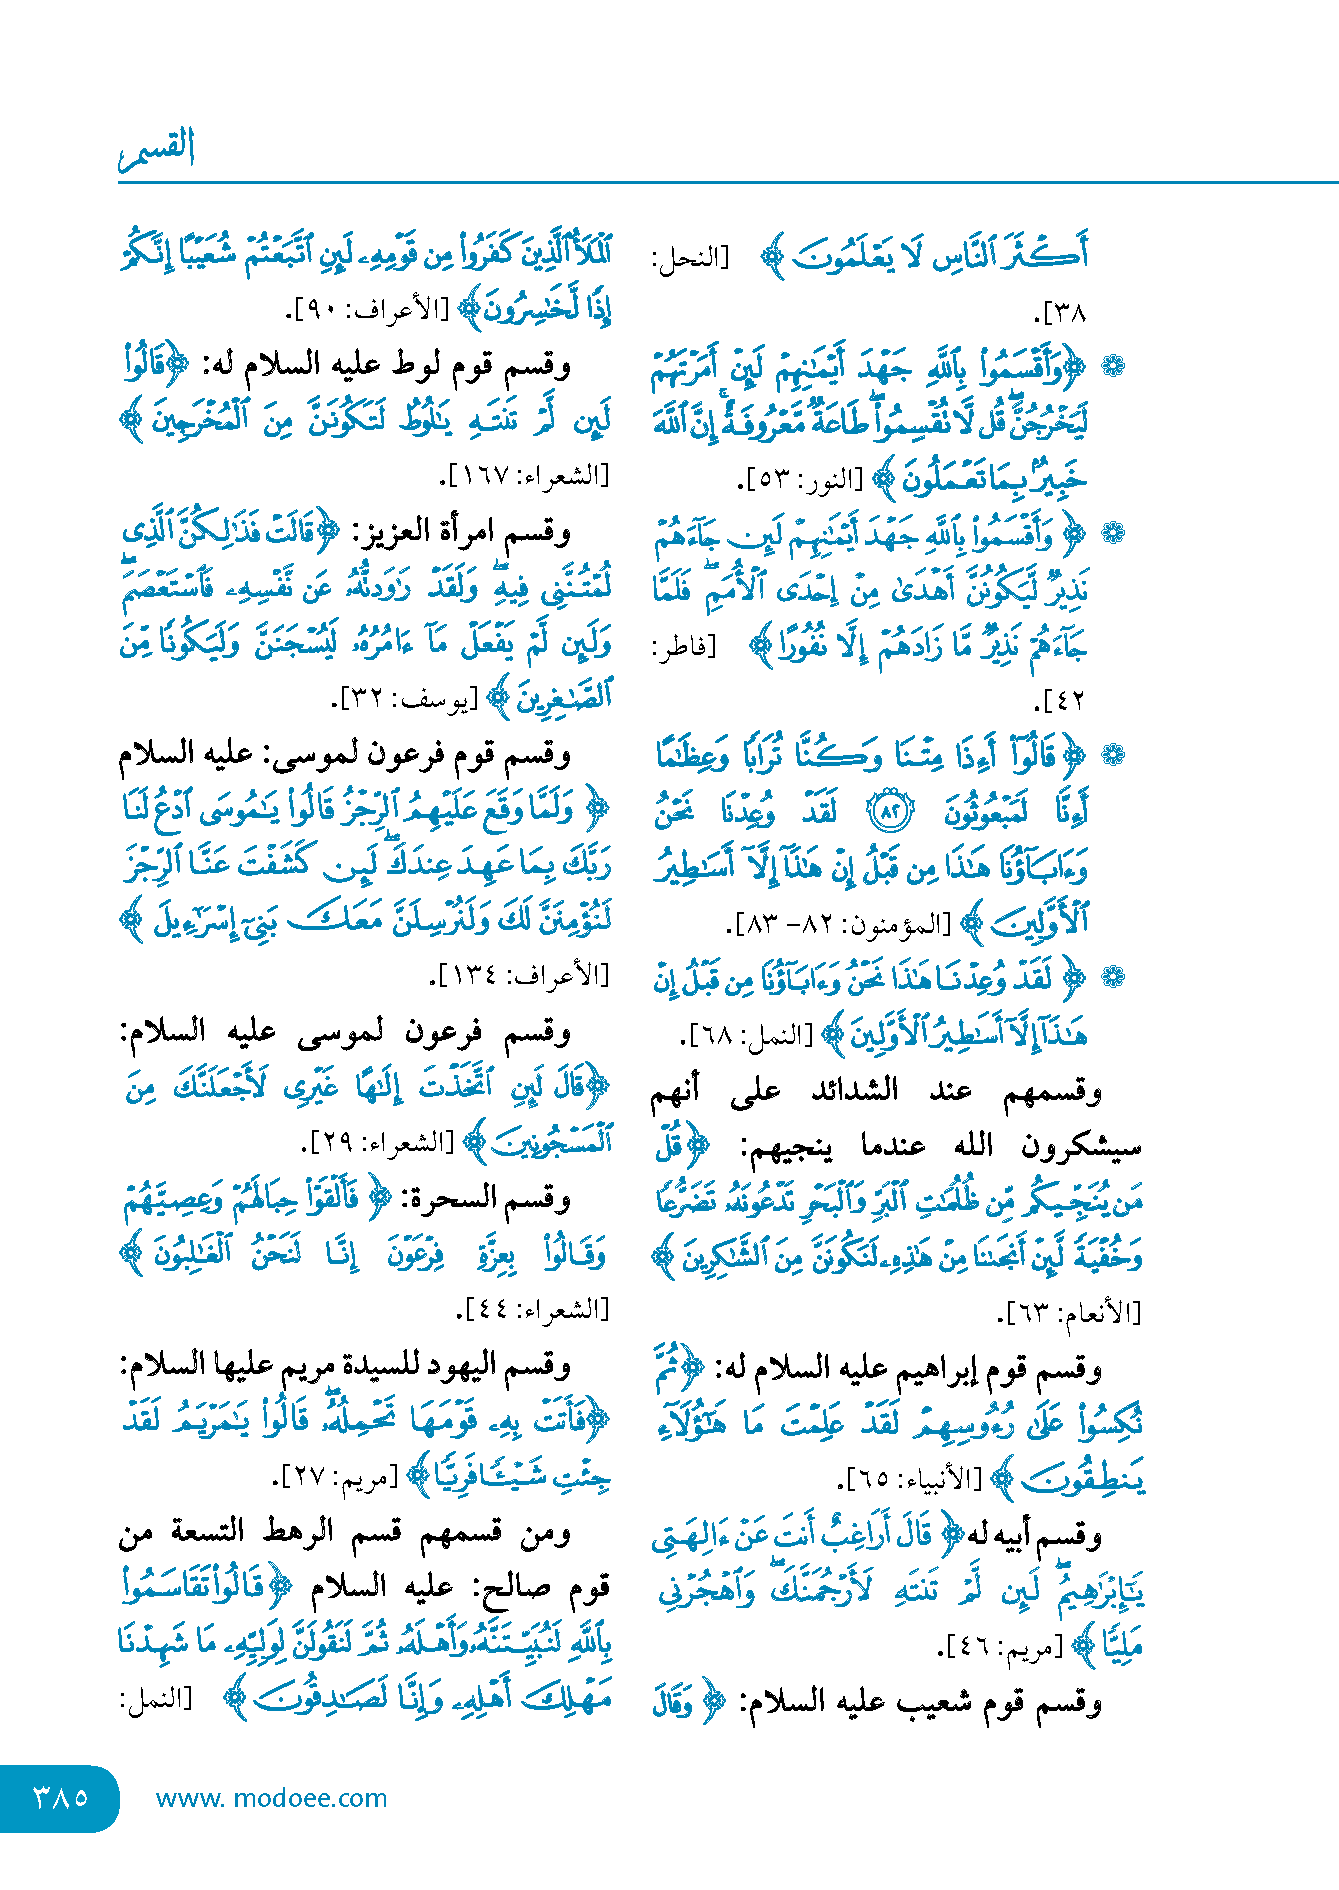 القسم
أَكْثَرَ ٱلنَّاسِ لَا يَعْلَمُونَ ﴾ [النحل:
٣٨].
❁ ﴿وَأَقْسَمُوا۟ بِٱللَّهِ جَهْدَ أَيْمَٰنِهِمْ لَئِنْ أَمَرْتَهُمْ
لَيَخْرُجُنَّ ۖ قُل لَّا تُقْسِمُوا۟ ۖ طَاعَةٌ مَّعْرُوفَةٌ ۚ إِنَّ ٱللَّهَ
خَبِيرٌۢ بِمَا تَعْمَلُونَ ﴾ [النور: ٥٣].
❁ ﴿ وَأَقْسَمُوا۟ بِٱللَّهِ جَهْدَ أَيْمَٰنِهِمْ لَئِن جَآءَهُمْ
نَذِيرٌ لَّيَكُونُنَّ أَهْدَىٰ مِنْ إِحْدَى ٱلْأُمَمِ ۖ فَلَمَّا
جَآءَهُمْ نَذِيرٌ مَّا زَادَهُمْ إِلَّا نُفُورًا ﴾ [فاطر:
٤٢].
❁ ﴿ قَالُوٓا۟ أَءِذَا مِتْنَا وَكُنَّا تُرَابًا وَعِظَٰمًا
أَءِنَّا لَمَبْعُوثُونَ ۝٨٢ لَقَدْ وُعِدْنَا نَحْنُ
وَءَابَآؤُنَا هَٰذَا مِن قَبْلُ إِنْ هَٰذَآ إِلَّآ أَسَٰطِيرُ
ٱلْأَوَّلِينَ ﴾ [المؤمنون: ٨٢- ٨٣].
❁ ﴿ لَقَدْ وُعِدْنَا هَٰذَا نَحْنُ وَءَابَآؤُنَا مِن قَبْلُ إِنْ
هَٰذَآ إِلَّآ أَسَٰطِيرُ ٱلْأَوَّلِينَ ﴾ [النمل: ٦٨].
وقسمهم عند الشدائد على أنهم
سيشكرون الله عندما ينجيهم: ﴿قُلْ
مَن يُنَجِّيكُم مِّن ظُلُمَٰتِ ٱلْبَرِّ وَٱلْبَحْرِ تَدْعُونَهُۥ تَضَرُّعًا
وَخُفْيَةً لَّئِنْ أَنجَىٰنَا مِنْ هَٰذِهِۦ لَنَكُونَنَّ مِنَ ٱلشَّٰكِرِينَ ﴾
[الأنعام: ٦٣].
وقسم قوم إبراهيم عليه السلام له: ﴿ثُمَّ
نُكِسُوا۟ عَلَىٰ رُءُوسِهِمْ لَقَدْ عَلِمْتَ مَا هَٰٓؤُلَآءِ
يَنطِقُونَ ﴾ [الأنبياء: ٦٥].
وقسم أبيه له﴿ قَالَ أَرَاغِبٌ أَنتَ عَنْ ءَالِهَتِى
يَٰٓإِبْرَٰهِيمُ ۖ لَئِن لَّمْ تَنتَهِ لَأَرْجُمَنَّكَ ۖ وَٱهْجُرْنِى
مَلِيًّا ﴾ [مريم: ٤٦].
وقسم قوم شعيب عليه السلام: ﴿ وَقَالَ
ٱلْمَلَأُ ٱلَّذِينَ كَفَرُوا۟ مِن قَوْمِهِۦ لَئِنِ ٱتَّبَعْتُمْ شُعَيْبًا إِنَّكُمْ
إِذًا لَّخَٰسِرُونَ﴾ [الأعراف: ٩٠].
وقسم قوم لوط عليه السلام له: ﴿قَالُوا۟
لَئِن لَّمْ تَنتَهِ يَٰلُوطُ لَتَكُونَنَّ مِنَ ٱلْمُخْرَجِينَ ﴾
[الشعراء: ١٦٧].
وقسم امرأة العزيز: ﴿قَالَتْ فَذَٰلِكُنَّ ٱلَّذِى
لُمْتُنَّنِى فِيهِ ۖ وَلَقَدْ رَٰوَدتُّهُۥ عَن نَّفْسِهِۦ فَٱسْتَعْصَمَ ۖ
وَلَئِن لَّمْ يَفْعَلْ مَآ ءَامُرُهُۥ لَيُسْجَنَنَّ وَلَيَكُونًا مِّنَ
ٱلصَّٰغِرِينَ ﴾ [يوسف: ٣٢].
وقسم قوم فرعون لموسى: عليه السلام
﴿ وَلَمَّا وَقَعَ عَلَيْهِمُ ٱلرِّجْزُ قَالُوا۟ يَٰمُوسَى ٱدْعُ لَنَا
رَبَّكَ بِمَا عَهِدَ عِندَكَ ۖ لَئِن كَشَفْتَ عَنَّا ٱلرِّجْزَ
لَنُؤْمِنَنَّ لَكَ وَلَنُرْسِلَنَّ مَعَكَ بَنِىٓ إِسْرَٰٓءِيلَ ﴾
[الأعراف: ١٣٤].
وقسم فرعون لموسى عليه السلام:
﴿قَالَ لَئِنِ ٱتَّخَذْتَ إِلَٰهًا غَيْرِى لَأَجْعَلَنَّكَ مِنَ
ٱلْمَسْجُونِينَ ﴾ [الشعراء: ٢٩].
وقسم السحرة: ﴿ فَأَلْقَوْا۟ حِبَالَهُمْ وَعِصِيَّهُمْ
وَقَالُوا۟ بِعِزَّةِ فِرْعَوْنَ إِنَّا لَنَحْنُ ٱلْغَٰلِبُونَ ﴾
[الشعراء: ٤٤].
وقسم اليهود للسيدة مريم عليها السلام:
﴿فَأَتَتْ بِهِۦ قَوْمَهَا تَحْمِلُهُۥ ۖ قَالُوا۟ يَٰمَرْيَمُ لَقَدْ
جِئْتِ شَيْـًٔا فَرِيًّا ﴾ [مريم: ٢٧].
ومن قسمهم قسم الرهط التسعة من
قوم صالح: عليه السلام ﴿ قَالُوا۟ تَقَاسَمُوا۟
بِٱللَّهِ لَنُبَيِّتَنَّهُۥ وَأَهْلَهُۥ ثُمَّ لَنَقُولَنَّ لِوَلِيِّهِۦ مَا شَهِدْنَا
مَهْلِكَ أَهْلِهِۦ وَإِنَّا لَصَٰدِقُونَ ﴾ [النمل:
٣٨٥
www. modoee.com